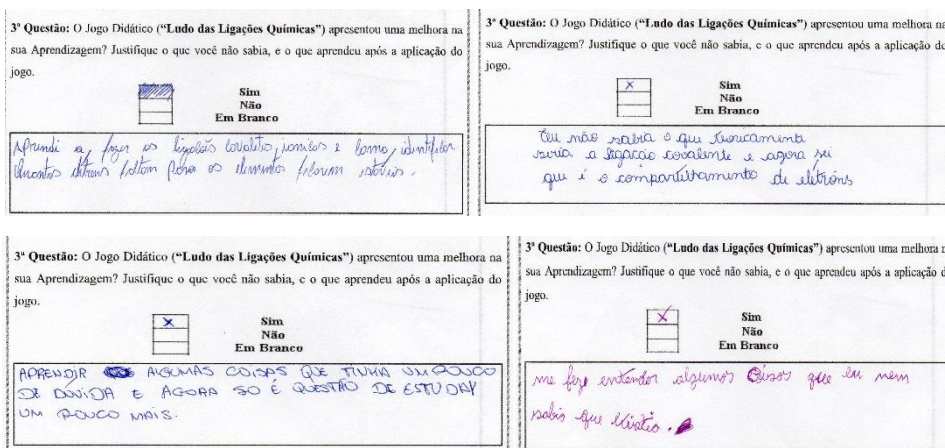 3ª Questão: O Jogo Didático ("Ludo das Ligações Químicas") apresentou uma melhora na
sua Aprendizagem? Justifique o que você não sabia, e o que aprendeu após a aplicação do
jogo.
Sim
Não
Em Branco
Aprendi a fazer as ligações covalites, ionicas e como identificar
quantos eletrons faltam para os elementos ficarem estaveis.
3ª Questão: O Jogo Didático ("Ludo das Ligações Químicas") apresentou uma melhora na
sua Aprendizagem? Justifique o que você não sabia, e o que aprendeu após a aplicação do
jogo.
Sim
Não
Em Branco
Eu não sabia o que teoricamente
seria a ligação covalente e agora sei
que é o compartilhamento de eletróns
3ª Questão: O Jogo Didático ("Ludo das Ligações Químicas") apresentou uma melhora na
sua Aprendizagem? Justifique o que você não sabia, e o que aprendeu após a aplicação do
jogo.
Sim
Não
Em Branco
APRENDIR ALGUMAS COISAS QUE TINHA UM POUCO
DE DÚVIDA E AGORA SO É QUESTÃO DE ESTUDAR
UM POUCO MAIS.
3ª Questão: O Jogo Didático ("Ludo das Ligações Químicas") apresentou uma melhora
sua Aprendizagem? Justifique o que você não sabia, e o que aprendeu após a aplicação d
jogo.
Sim
Não
Em Branco
me fez entender algumas coisas que eu nem
sabia que existia.